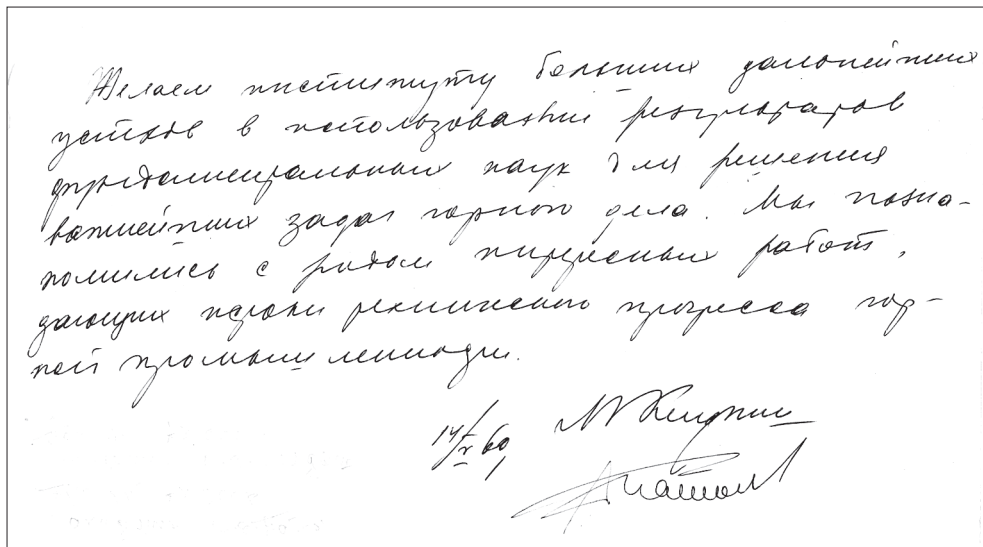 Желаем институту больших дальнейших
успехов в использовании результатов
фундаментальных наук для решения
важнейших задач горного дела. Мы позна-
комились с рядом интересных работ,
дающих технического прогресса гор-
ной промышленности.
14/X 60
М Келдыш